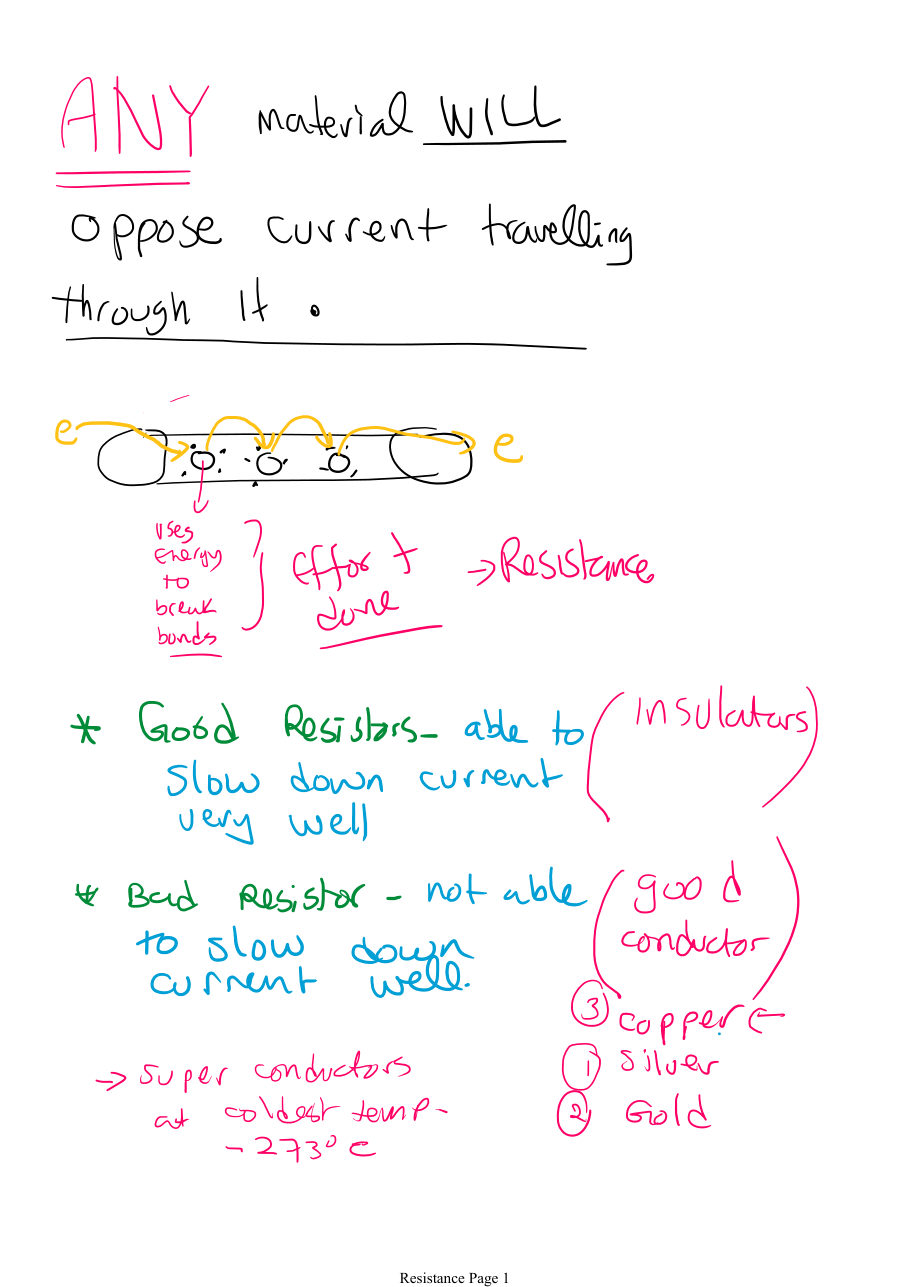 ANY material WILL
oppose current travelling
through It .
e
e
uses
energy
to
break
bonds
Effort
done
→ Resistance
* Good Resistors - able to
slow down current
very well
(insulators)
* Bad Resistor - not able
to slow down
current well.
(good
conductor)
③ copper ←
① silver
② Gold
→ super conductors
at coldest temp -
- 273° c
Resistance Page 1